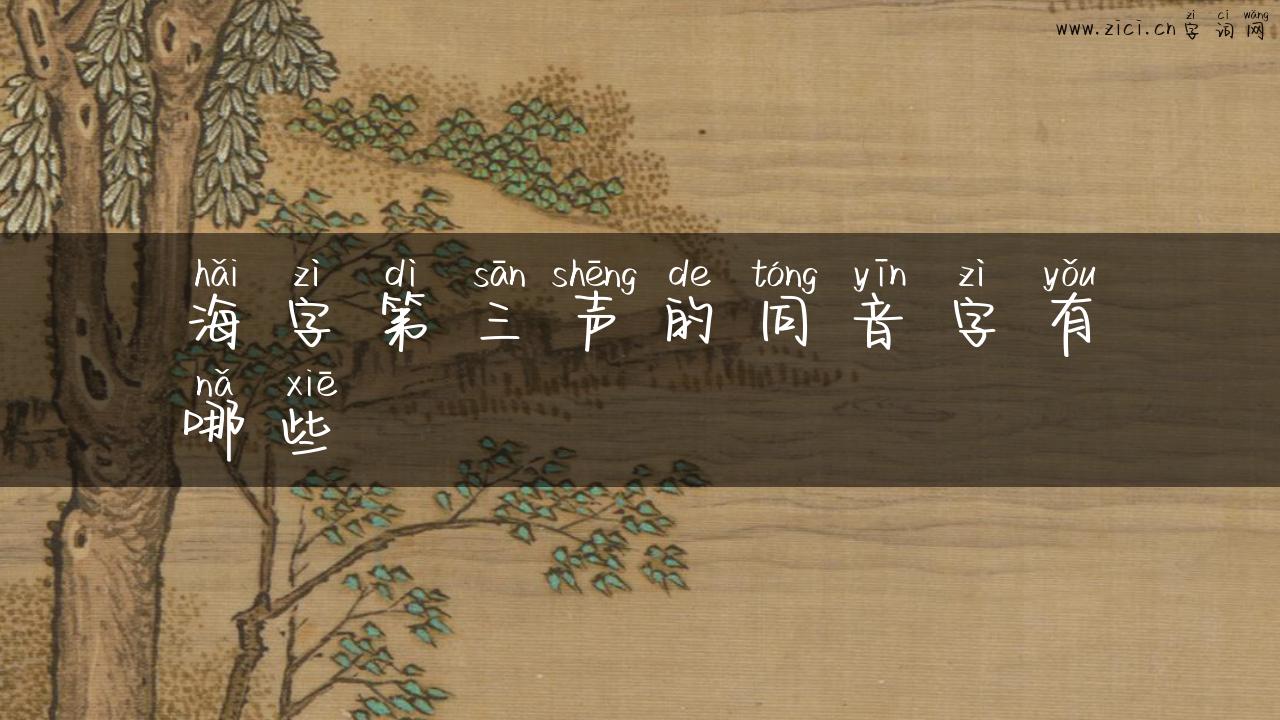 zì cí wǎng
www.zici.cn 字词网
hǎi zì dì sān shēng de tóng yīn zì yǒu
海字第三声的同音字有
nǎ xiē
哪些